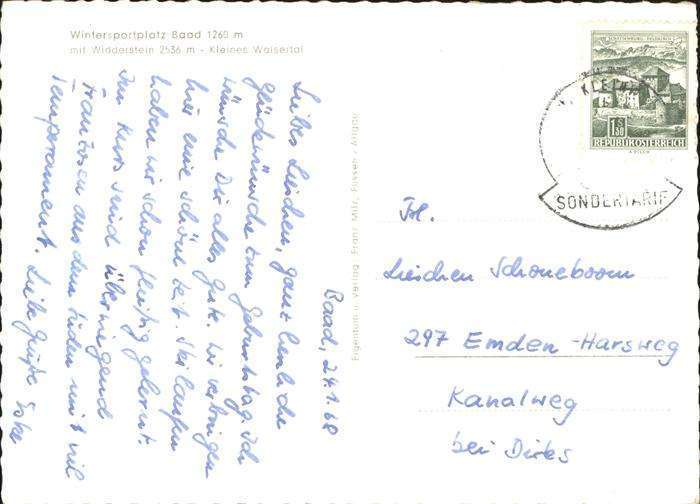 Wintersportplatz Baad 1260 m
mit Widderstein 2536 m - Kleines Walsertal
Baad, 24.1.68
Liebes Lieschen, ganz herzliche
Glückwünsche zum Geburtstag. Ich
wünsche Dir alles Gute. Wir verbringen
hier eine schöne Zeit. Skilaufen
haben wir schon fleißig gelernt.
Im Kurs sind überwiegend
Franzosen aus dem Süden mit viel
Temperament. Liebe Grüße Eske
Eigentum u. Verlag Franz Milz, Füssen - Allgäu
1.50
REPUBLIK ÖSTERREICH
SONDERTARIF
Frl.
Lieschen Schoneboom
297 Emden-Harsweg
Kanalweg
bei Dirks